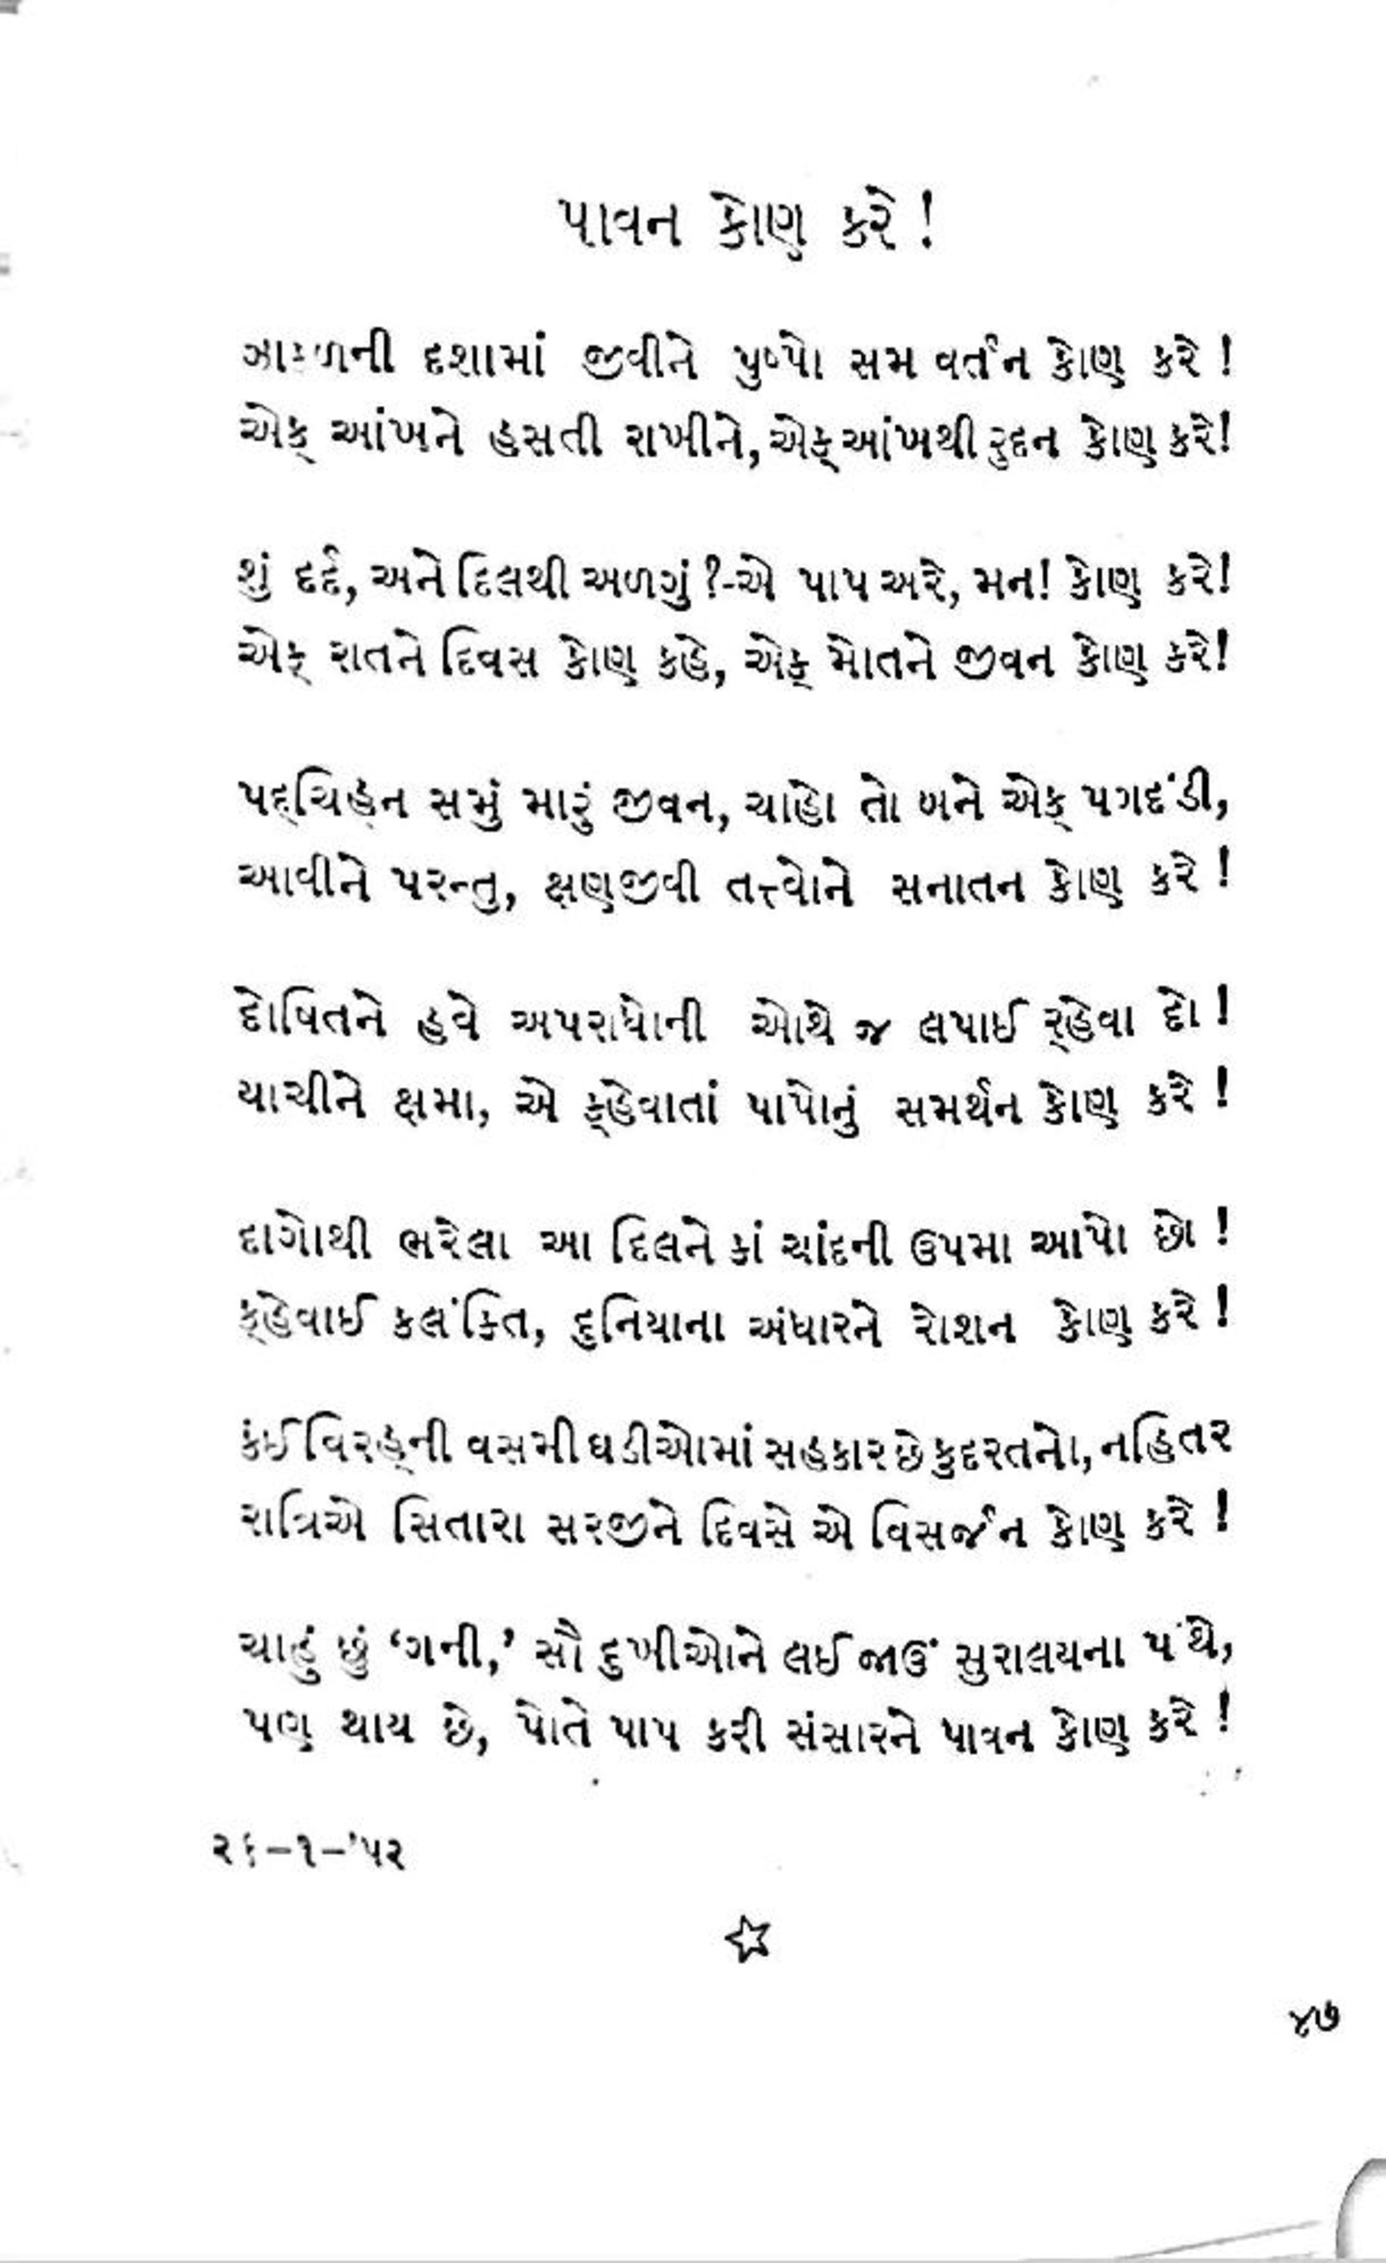 પાવન કોણ કરે !
ઝાકળની દશામાં જીવીને પુષ્પો સમ વર્તન કોણ કરે !
એક્ આંખને હસતી રાખીને, એક્ આંખથી રુદન કોણ કરે!
શું દર્દ, અને દિલથી અળગું ?-એ પાપ અરે, મન! કોણ કરે!
એક્ રાતને દિવસ કોણ કહે, એક્ મોતને જીવન કોણ કરે!
પદ્ચિહ્ન સમું મારું જીવન, ચાહો તો બને એક્ પગદંડી,
આવીને પરન્તુ, ક્ષણજીવી તત્ત્વોને સનાતન કોણ કરે !
દોષિતને હવે અપરાધોની ઓથે જ લપાઈ ર્‌હેવા દો !
યાચીને ક્ષમા, એ ક્‌હેવાતાં પાપોનું સમર્થન કોણ કરે !
દાગોથી ભરેલા આ દિલને કાં ચાંદની ઉપમા આપો છો !
ક્‌હેવાઈ કલંકિત, દુનિયાના અંધારને રોશન કોણ કરે !
કંઈ વિરહ્‌ની વસમી ઘડીઓમાં સહકાર છે કુદરતનો, નહિતર
રાત્રિએ સિતારા સરજીને દિવસે એ વિસર્જન કોણ કરે !
ચાહું છું ‘ગની,’ સૌ દુખીઓને લઈ જાઉં સુરાલયના પંથે,
પણ થાય છે, પોતે પાપ કરી સંસારને પાવન કોણ કરે !
૨૬-૧-’૫૨
૪૭